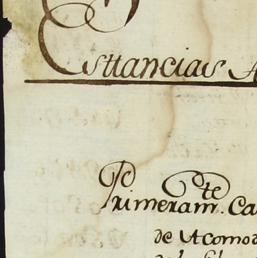 Esttancias A
Primeram.te Ca
de Acomod